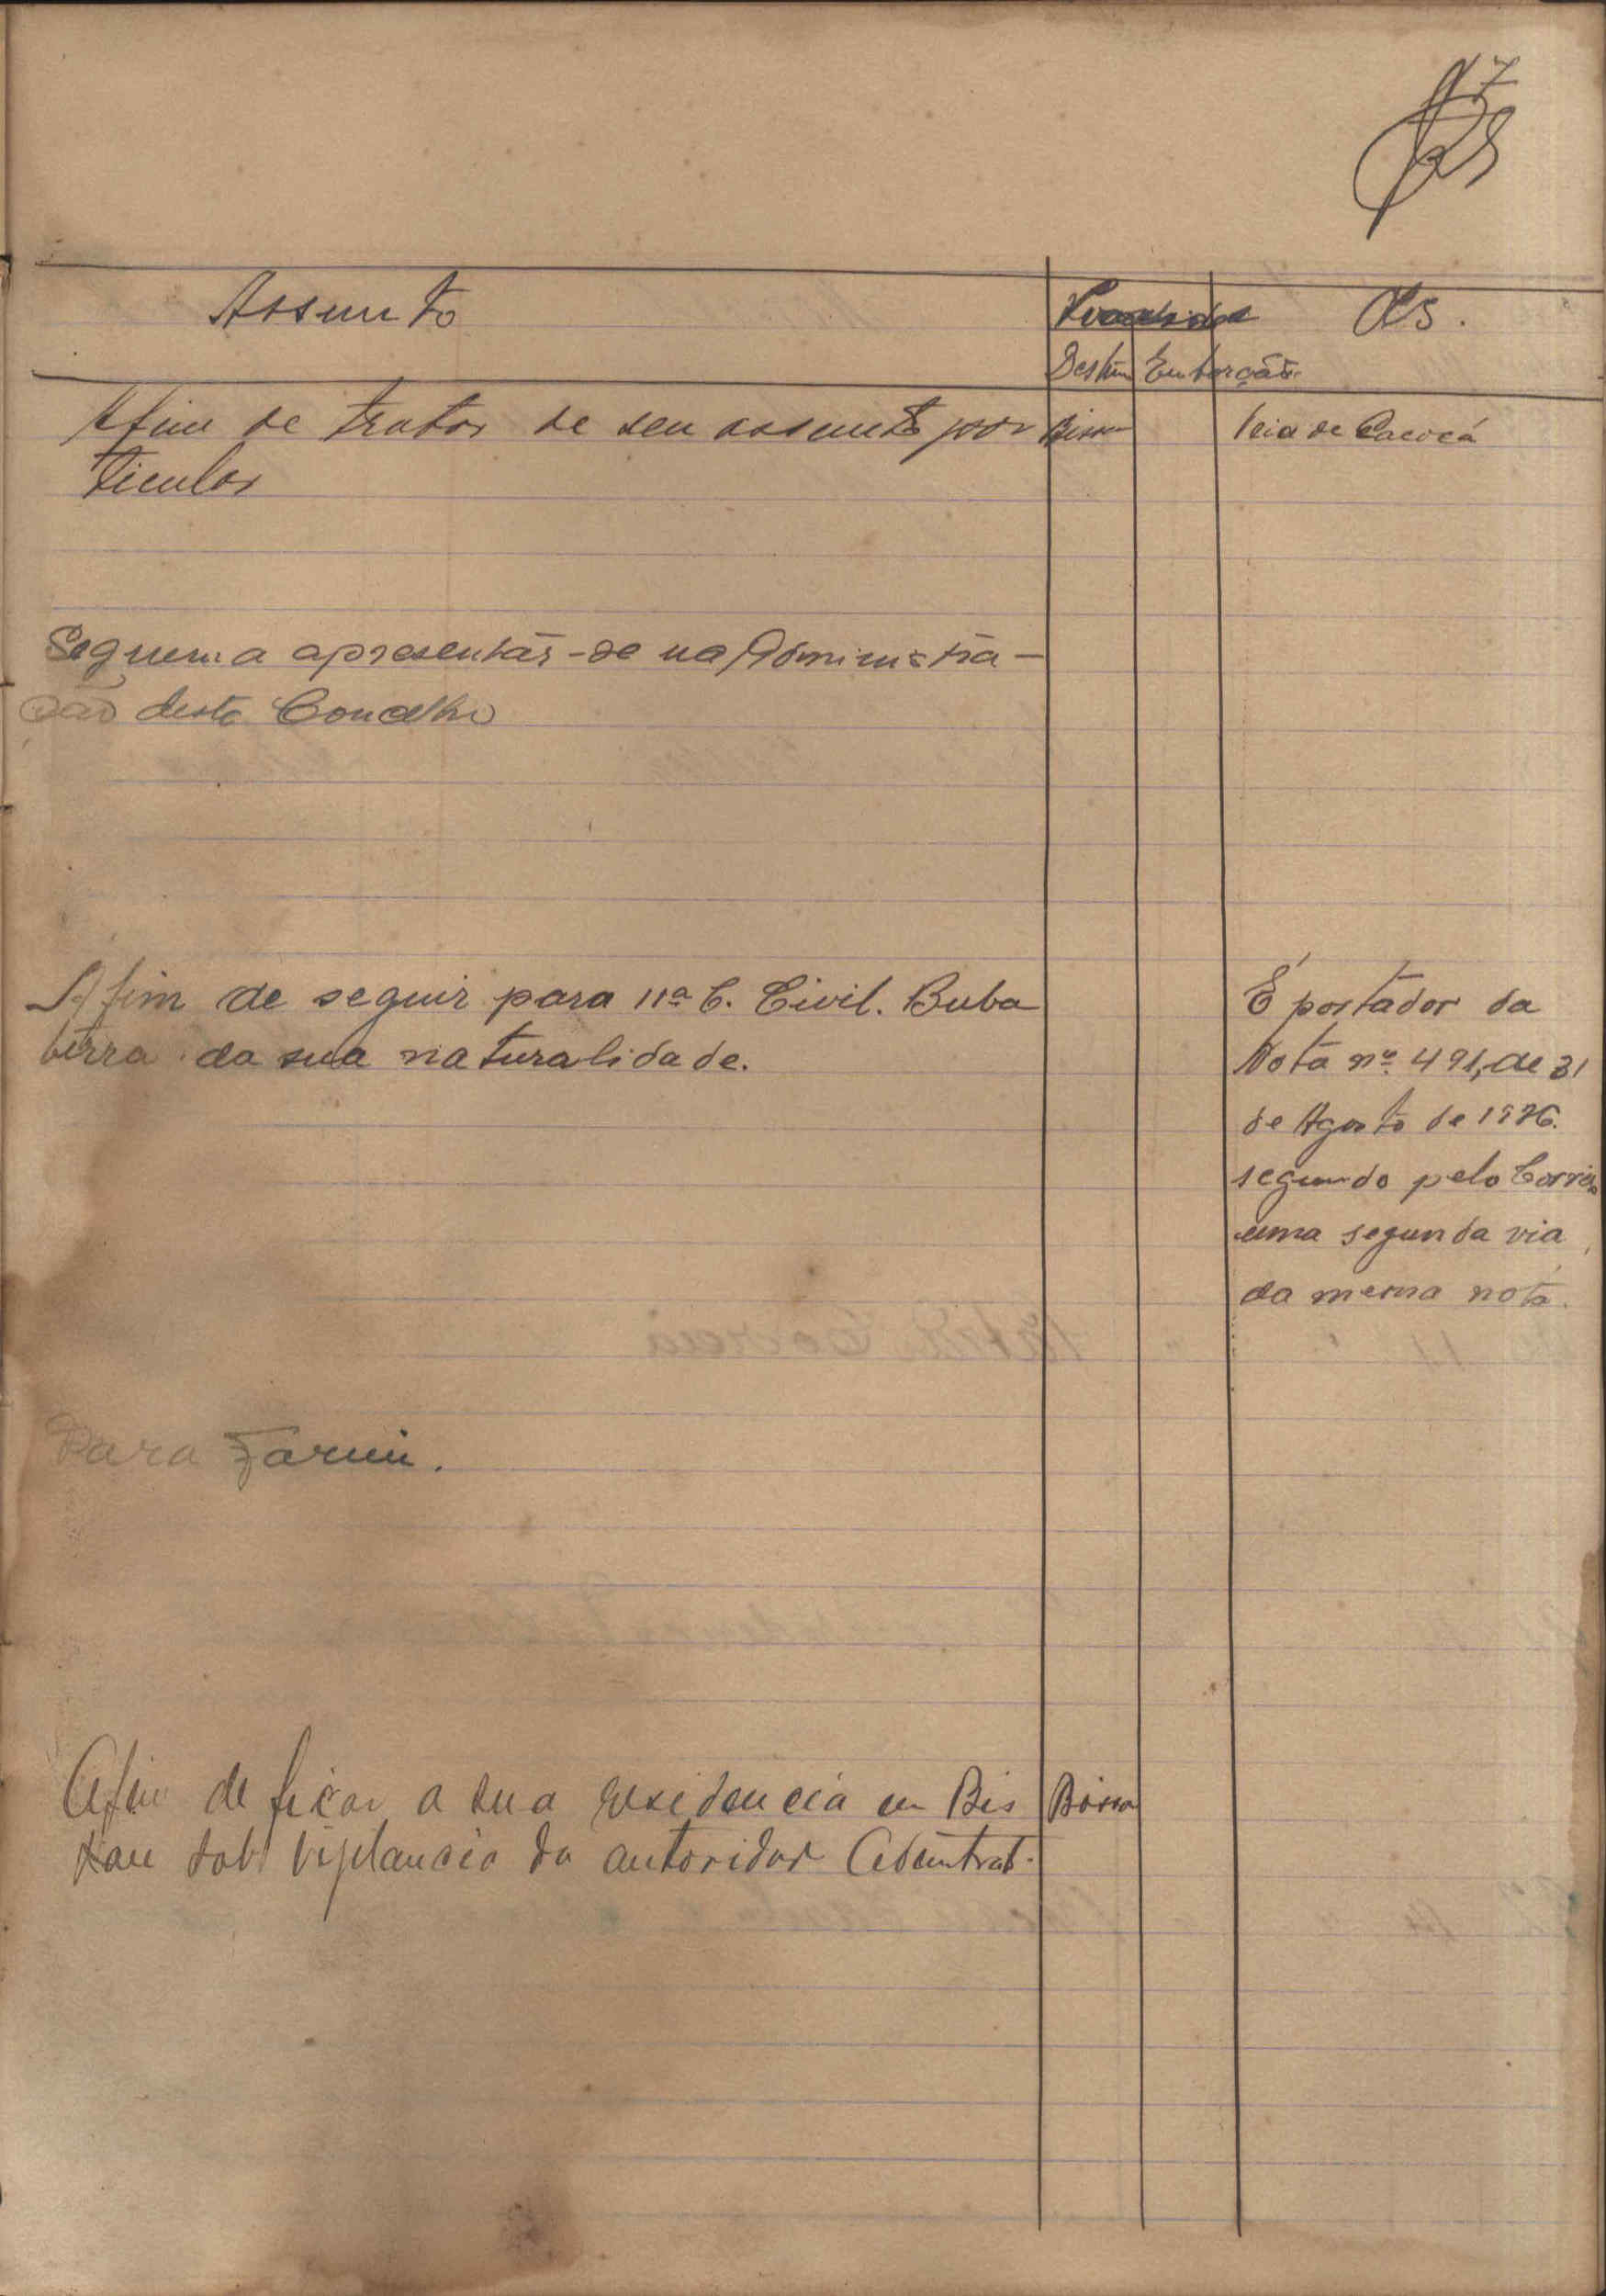 7
Assunto
Obs.
Destino Embarcação
Afim de tratar de seu assunto par
ticular
Bissau
Seguem a apresentar-se na Administra-
ção deste Concelho
Afim de seguir para 11ª C. Civil. Buba
terra da sua naturalidade.
É portador da
Nota nº 491, de 31
de Agosto de 1926.
segundo pelo Correio
uma segunda via
da mesma nota.
Para Farim.
Afim de ficar a sua residencia em Bis
sau sob vigilancia da autoridad
Bissau